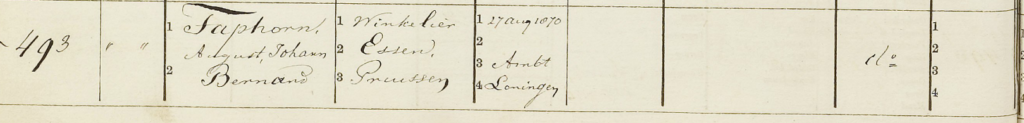 493 " " 1 Taphorn, 1 Winkelier 1 27 Aug 1870 1
August, Johann 2 Essen, 2 2
2 Bernard 3 Pruissen 3 Ambt do 3
4 Loningen 4